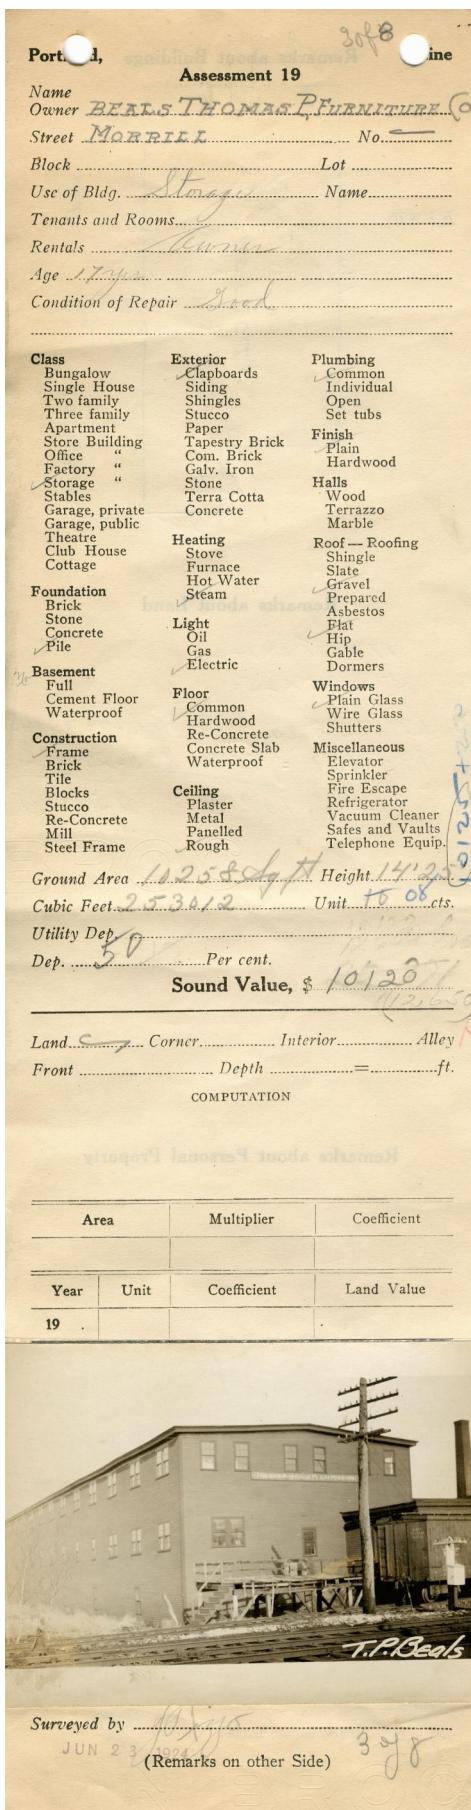 3 of 8
Portland, Maine
Assessment 19
Name
Owner BEALS THOMAS P. FURNITURE CO
Street MORRILL No.
Block Lot
Use of Bldg. Storage Name
Tenants and Rooms
Rentals Owner
Age 17 yrs
Condition of Repair Good
Class
Bungalow
Single House
Two family
Three family
Apartment
Store Building
Office "
Factory "
✓ Storage "
Stables
Garage, private
Garage, public
Theatre
Club House
Cottage
Foundation
Brick
Stone
Concrete
✓ Pile
Basement
Full
Cement Floor
Waterproof
Construction
✓ Frame
Brick
Tile
Blocks
Stucco
Re-Concrete
Mill
Steel Frame
Exterior
✓ Clapboards
Siding
Shingles
Stucco
Paper
Tapestry Brick
Com. Brick
Galv. Iron
Stone
Terra Cotta
Concrete
Heating
Stove
Furnace
Hot Water
✓ Steam
Light
Oil
Gas
✓ Electric
Floor
✓ Common
Hardwood
Re-Concrete
Concrete Slab
Waterproof
Ceiling
Plaster
Metal
Panelled
✓ Rough
Plumbing
✓ Common
Individual
Open
Set tubs
Finish
✓ Plain
Hardwood
Halls
Wood
Terrazzo
Marble
Roof — Roofing
Shingle
Slate
✓ Gravel
Prepared
Asbestos
✓ Flat
Hip
Gable
Dormers
Windows
✓ Plain Glass
Wire Glass
Shutters
Miscellaneous
Elevator
Sprinkler
Fire Escape
Refrigerator
Vacuum Cleaner
Safes and Vaults
Telephone Equip.
Ground Area 10258 Sq ft Height 14'
Cubic Feet 253012 Unit 08 cts.
Utility Dep.
Dep. 50 Per cent.
Sound Value, $ 10120
Land Corner Interior Alley
Front Depth = ft.
COMPUTATION
Area Multiplier Coefficient
Year Unit Coefficient Land Value
19 .
T.P. Beals
Surveyed by
JUN 23 1924
3 of 8
(Remarks on other Side)